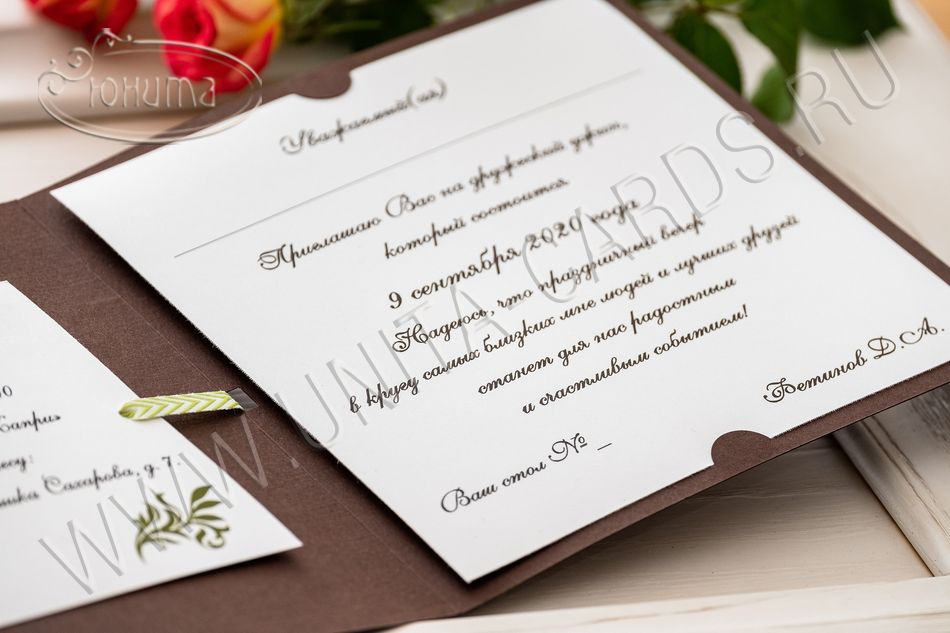 Юнита
Уважаемый(ая)
Приглашаю Вас на дружеский ужин,
который состоится
9 сентября 2020 года
Надеюсь, что праздничный вечер
в кругу самых близких мне людей и лучших друзей
станет для нас радостным
и счастливым событием!
Бетинов Д.А.
Ваш стол № _
Сахарова, д. 7.
WWW.UNITA-CARDS.RU